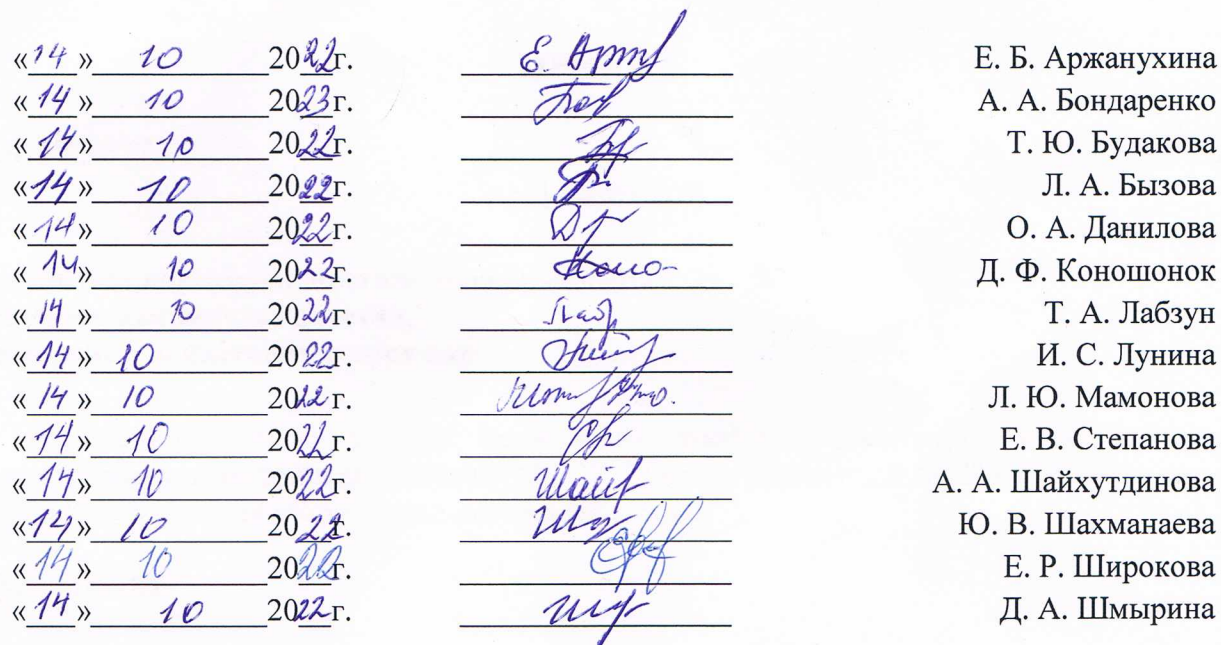 «14» 10 2022г. Е. Арж Е. Б. Аржанухина
«14» 10 2023г. А. А. Бондаренко
«14» 10 2022г. Т. Ю. Будакова
«14» 10 2022г. Л. А. Бызова
«14» 10 2022г. О. А. Данилова
«14» 10 2022г. Коно Д. Ф. Коношонок
«14» 10 2022г. Лабз Т. А. Лабзун
«14» 10 2022г. И. С. Лунина
«14» 10 2022г. Л. Ю. Мамонова
«14» 10 2022г. Е. В. Степанова
«14» 10 2022г. Шайх А. А. Шайхутдинова
«14» 10 2022г. Ю. В. Шахманаева
«14» 10 2022г. Е. Р. Широкова
«14» 10 2022г. Д. А. Шмырина